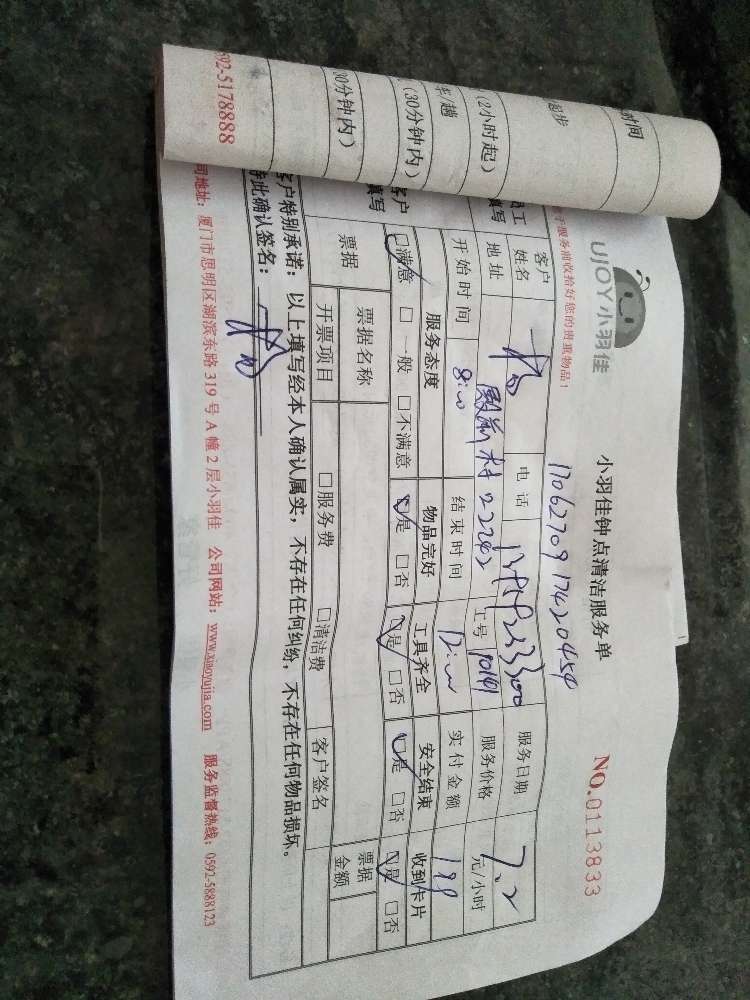 时间
起步
(2小时起)
(30分钟内)
30分钟内)
592-5178888
UJOY小羽佳
小羽佳钟点清洁服务单
NO.0113833
1706270917420454
于服务前收拾好您的贵重物品!
客户姓名
电话
服务日期
7.2
地址
殿前村22242
工号
服务价格
元/小时
开始时间
结束时间
实付金额
198
服务态度
物品完好
工具齐全
安全结束
收到卡片
□满意 □一般 □不满意
□是 □否
□是 □否
□是 □否
□是 □否
票据
票据名称
客户签名
票据金额
开票项目
□服务费
□清洁费
客户特别承诺:以上填写经本人确认属实,不存在任何纠纷,不存在任何物品损坏。
此确认签名:
司地址:厦门市思明区湖滨东路319号A幢2层小羽佳 公司网站:www.xiaoyujia.com 服务监督热线:0592-5888123